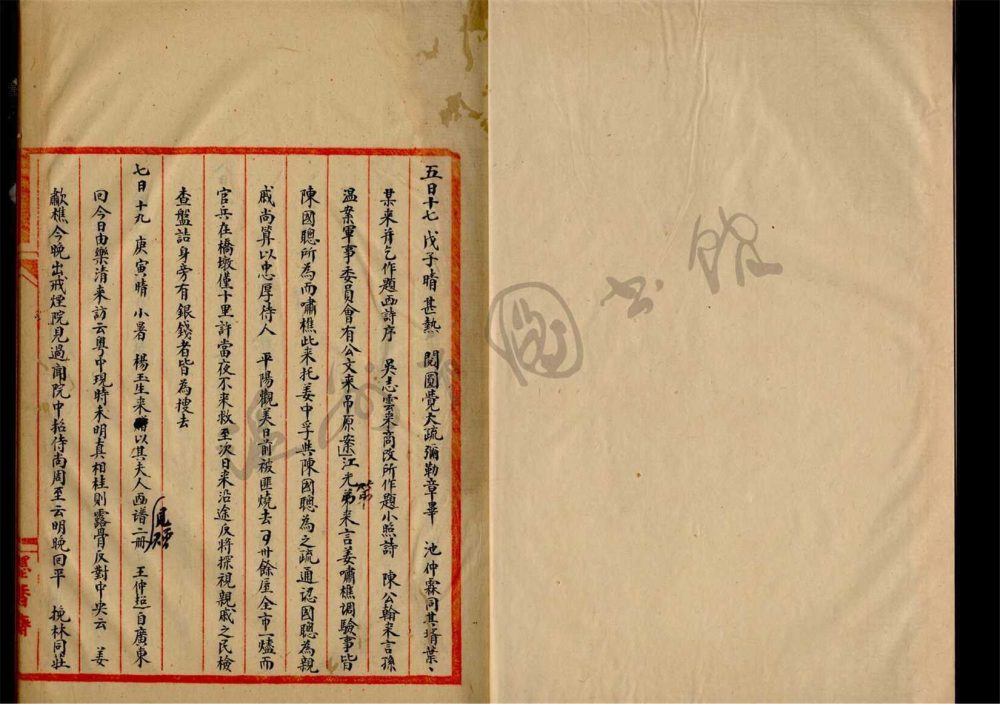 五日十七 戊子晴 甚熱 閱圓覺大疏彌勒章畢 池仲霖同其壻葉、
某来并乞作題西詩序 吳志雲来商改所作題小照詩 陳公翰来言孫
温案軍事委員會有公文来吊原案江光弟来言姜嘯樵调驗事皆
陳國聰所為而嘯樵此来托姜中孚與陳國聰為之疏通認國聰為親
戚尚算以忠厚待人 平陽觀美日前被匪燒去百卅餘屋全市一爐而
官兵在橋墩僅十里許當夜不来救至次日来沿途反将探視親戚之民檢
查盤詰身旁有銀錢者皆為搜去
七日十九 庚寅晴 小暑 楊玉生来以其夫人画譜二冊 見贈 王仲 自廣東
回今日由樂清来訪云粤中現時未明真相桂則露骨反對中央云 姜
歗樵今晚出戒煙院見過聞院中招待尚周至云明晚回平 挽林同莊
墨香
書館
圖